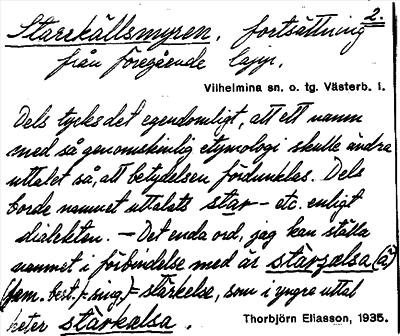 2.
Starrkällsmyren, fortsättning
från föregående lapp.
Vilhelmina sn. o. tg. Västerb. l.
Dels tycks det egendomligt, att ett namn
med så genomskinlig etymologi skulle ändra
uttalet så, att betydelsen fördunklas. Dels
borde namnet uttalats star- etc. enligt
dialekten. – Det enda ord, jag kan ställa
namnet i förbindelse med är stärsælsa (ä)
(fem. best. f. sing.) = stärkelse, som i yngre uttal
heter stärkælsa.
Thorbjörn Eliasson, 1935.